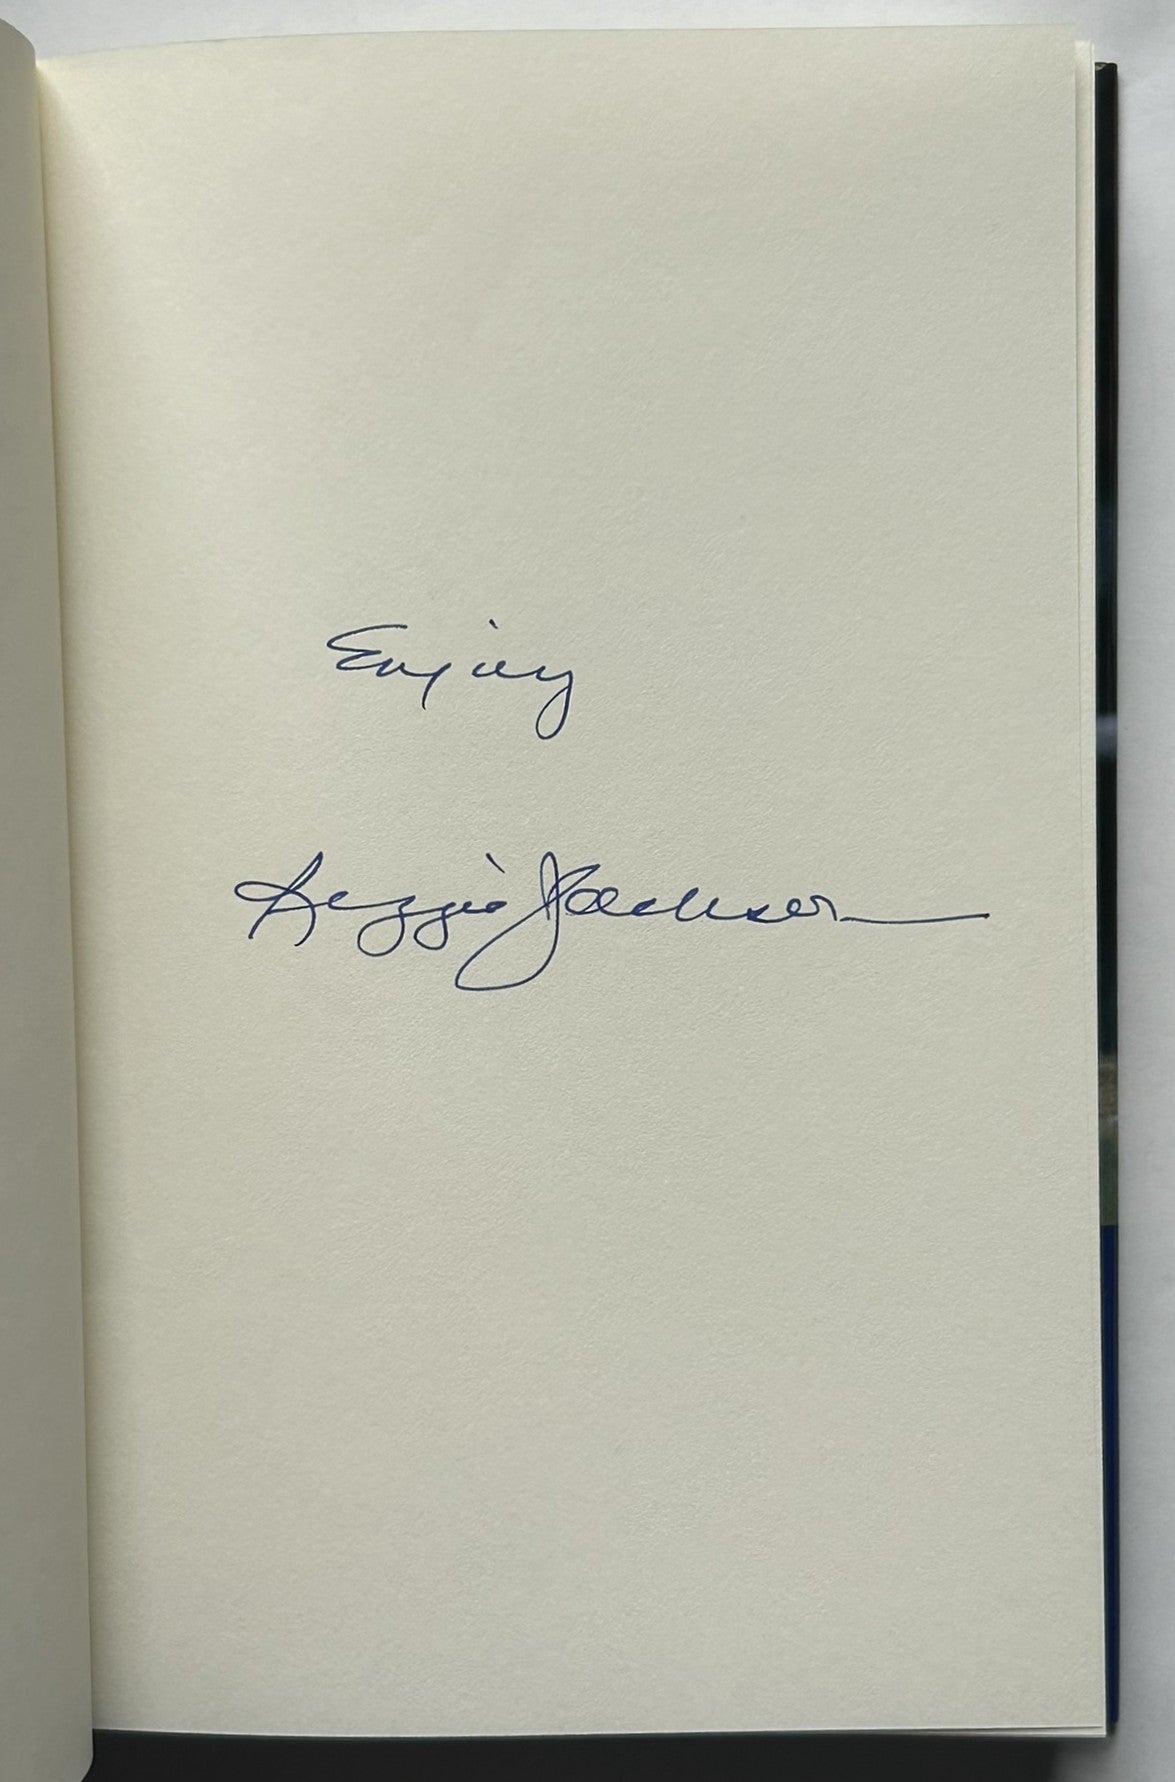 Enjoy
Reggie Jackson